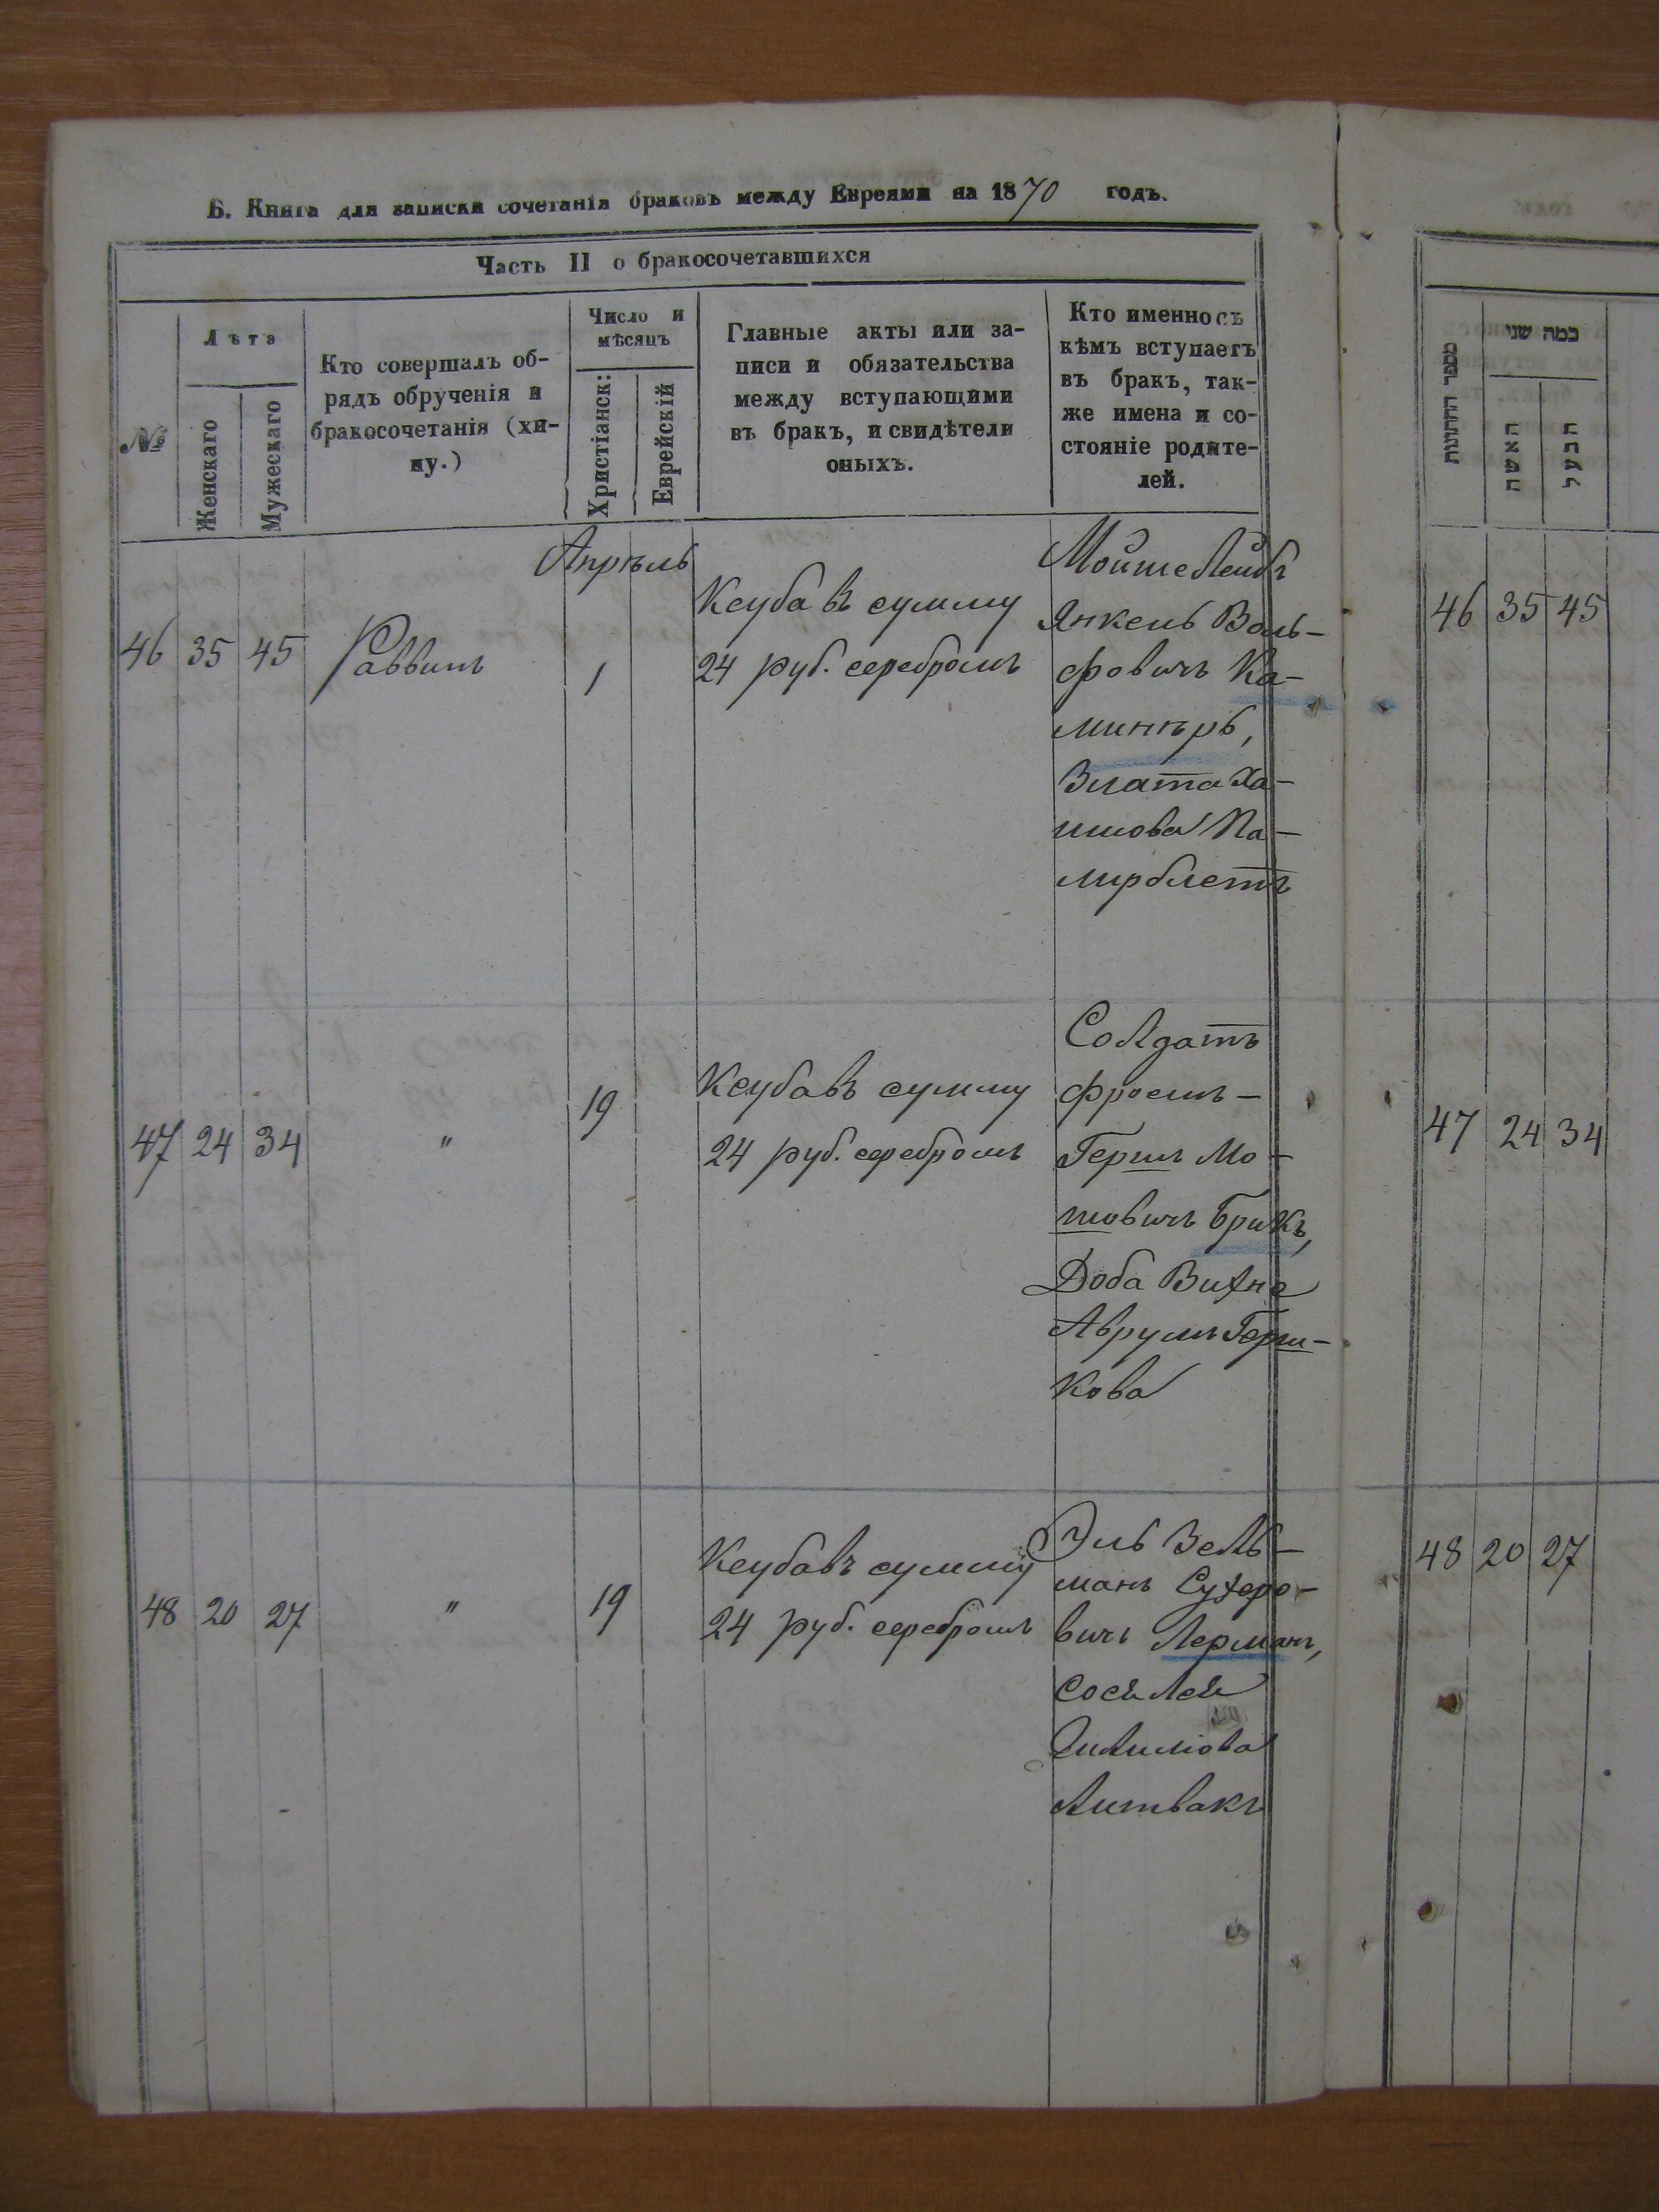 Б. Книга для записки сочетанія браковъ между Евреями на 1870 годъ.
Часть II о бракосочетавшихся
№
Лѣта
Женскаго
Мужескаго
Кто совершалъ об-
рядъ обрученія и
бракосочетанія (хи-
пу.)
Число и
мѣсяцъ
Христіанск:
Еврейскій
Главные акты или за-
писи и обязательства
между вступающими
въ бракъ, и свидѣтели
оныхъ.
Кто именно съ
кѣмъ вступаетъ
въ бракъ, так-
же имена и со-
стояніе родите-
лей.
Апрѣль
46 35 45 Раввинъ 1
Ксуба въ сумму
24 руб. серебромъ
Мойше Лейбъ
Янкель Воль-
фовичъ Ка-
минѣръ,
Злата Ха-
имова
47 24 34 " 19
Ксуба въ сумму
24 руб. серебромъ
Солдатъ
Фроимъ-
Гершъ Мо-
шовичъ Брикъ,
Доба Вихне
Аврумъ Герш-
кова
48 20 27 " 19
Ксуба въ сумму
24 руб. серебромъ
Эль Зель-
манъ Сухеро-
вичъ Лерманъ,
Сося Лея
Литвакъ
מספר החתונות
כמה שני
האשה
הבעל
46 35 45
47 24 34
48 20 27